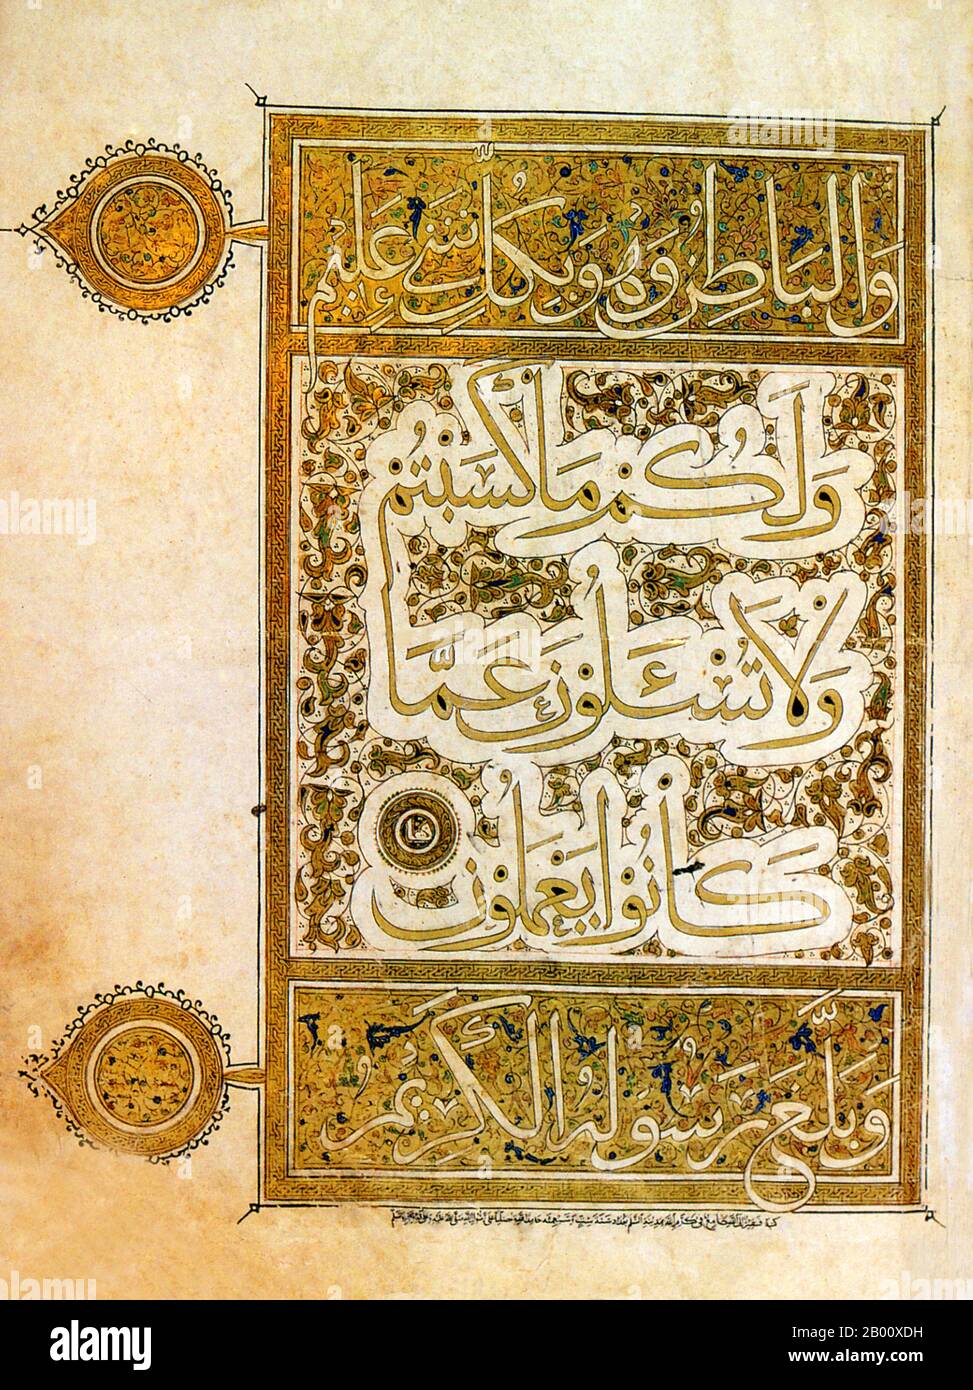 وَالبَاطِنُ وَهُوَ بِكُلِّ شَيْءٍ عَلِيمٌ
وَلَكُمْ مَا كَسَبْتُمْ
وَلَا تُسْئَلُونَ عَمَّا
كَانُوا يَعْمَلُونَ
وَبَلَّغَ رَسُولُهُ الكَرِيمُ
alamy
Image ID: 2B00XDH
www.alamy.com